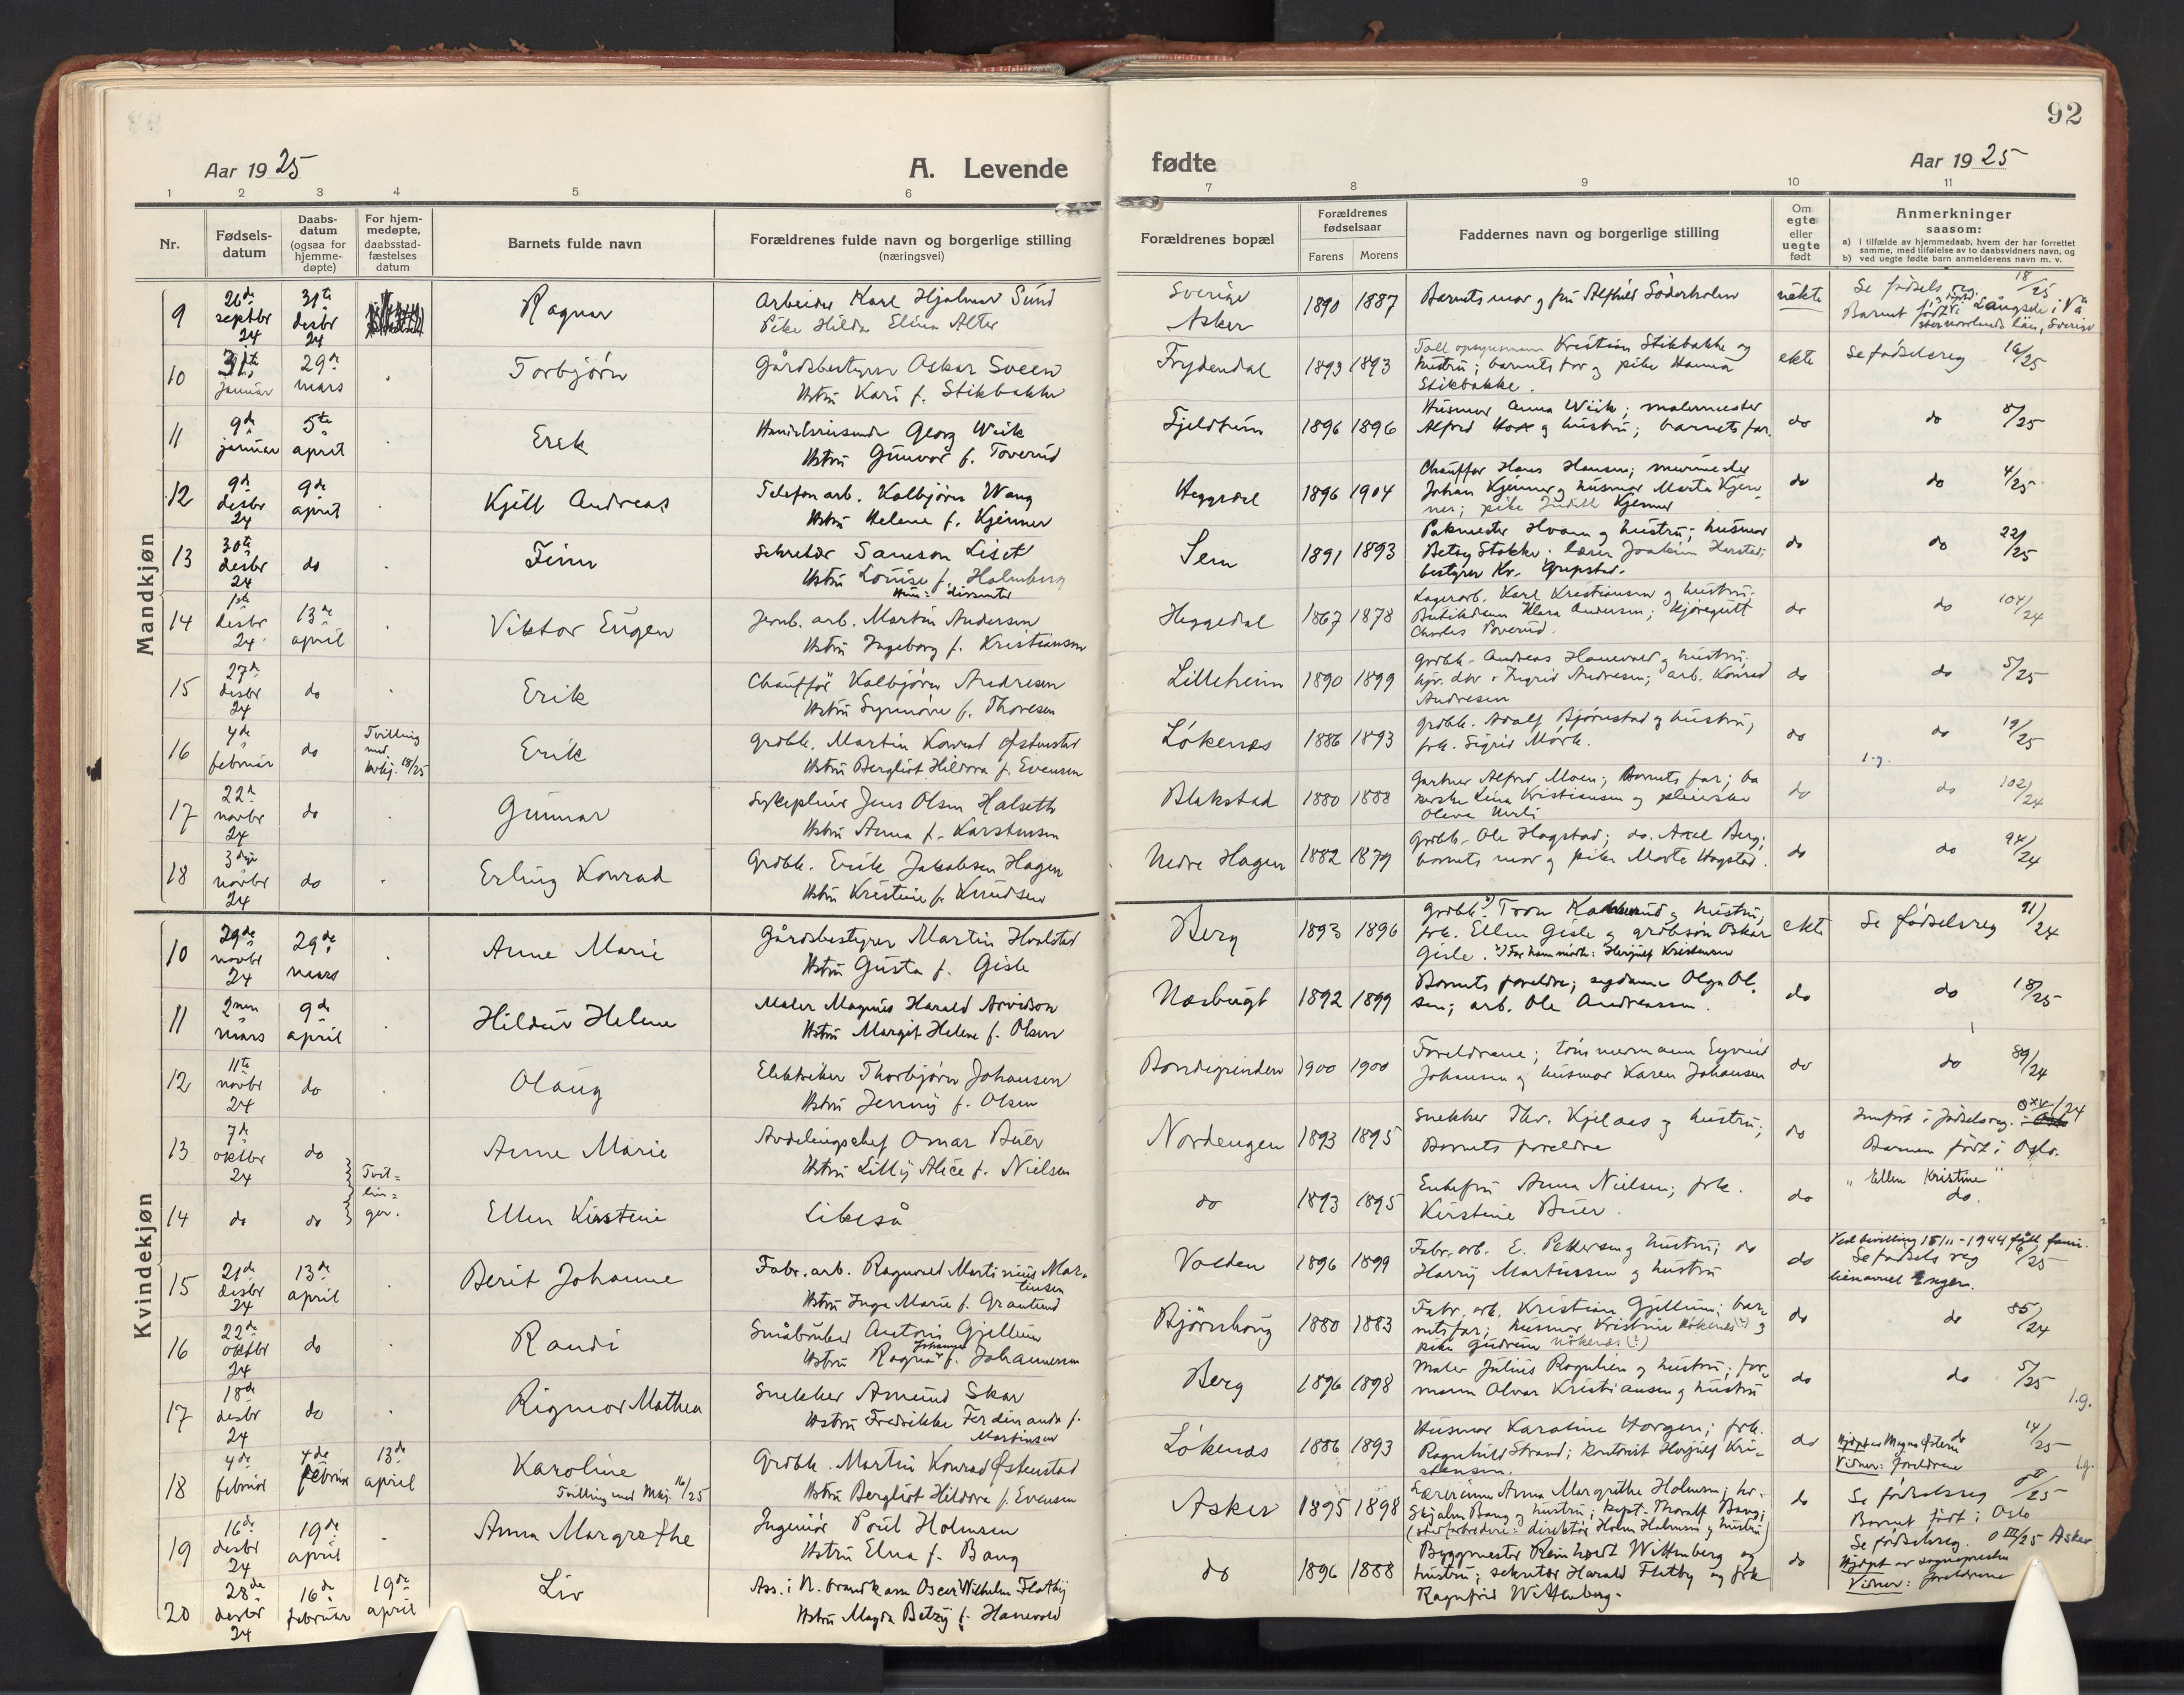 92
Aar 1925
A. Levende
fødte
Aar 1925
1 2 3 4 5 6 7 8 9 10 11
Nr.
Fødsels-
datum
Daabs-
datum
(ogsaa for
hjemme-
døpte)
For hjem-
medøpte,
daabsstad-
fæstelses
datum
Barnets fulde navn
Forældrenes fulde navn og borgerlige stilling
(næringsvei)
Forældrenes bopæl
Forældrenes
fødselsaar
Farens Morens
Faddernes navn og borgerlige stilling
Om
egte
eller
uegte
født
Anmerkninger
saasom:
a) i tilfælde av hjemmedaab, hvem der har forrettet
samme, med tilføielse av to daabsvidners navn, og
b) ved uegte fødte barn anmelderens navn m. v.
Mandkjøn
9 26de septbr 24 31te desbr 24 Ragnar
Arbeider Karl Hjalmar Sund
Pike Hilda Elina Alter
Sverige
Asker
1890 1887
Barnets mor og fru Alfhild Söderholm
uekte
Se fødselsreg. 18/25
Barnet født i Långsele i Vä
sternorrlands län, Sverige
10 31te januar 29de mars Torbjørn
Gårdsbestyrer Oskar Sveen
Hstru Kari f. Stikbakke
Frydendal 1893 1893
Toll opsynsmann Kristian Stikbakke og
hustru; barnets far og pike Hanna
Stikbakke.
ekte Se fødselsreg 16/25
11 9de januar 5te april Erik
Handelsreisende Georg Wiik
Hstru Gunvor f. Toverud
Fjeldheim 1896 1896
Husmor Anna Wiik; malermester
Alfred og hustru; barnets far.
do do 8/25
12 9de desbr 24 9de april Kjell Andreas
Telefonarb. Kolbjørn Wang
Hstru Helene f. Kjenner
Heggedal 1896 1904
Chauffør Hans Hansen; murmester
Johan Kjenner og husmor Marta Kjen-
ner; pike Judith Kjenner
do do 4/25
13 30te desbr 24 do Finn
Sekretær Samson Liset
Hstru Louise f. Holmberg
Hun: dissenter
Sem 1891 1893
Pakmester Hvam og hustru; husmor
Betsy Stokke; lærer Joakim Harstad;
bestyrer Kr. Grepstad.
do do 22/25
14 1ste desbr 24 13de april Viktor Eugen
Jernb. arb. Martin Andersen
Hstru Ingeborg f. Kristiansen
Heggedal 1867 1878
Lagerarb. Karl Kristiansen og hustru;
Butikdame Klara Andersen; kjøregutt
Charles Poverud.
do do 104/24
15 27de desbr 24 do Erik
Chauffør Kolbjørn Andresen
Hstru Synnøve f. Thoresen
Lilleheim 1890 1899
grdbk. Andreas Hanevold og hustru;
Ingrid Andresen; arb. Konrad
Andresen
do do 5/25
16 4de februar do Tvilling
med
kvkj. 18/25
Erik
Grdbk. Martin Konrad Østenstad
Hstru Bergliot Hildora f. Evensen
Løkenes 1886 1893
grdbk. Adolf Bjørnstad og hustru;
frk. Sigrid Mørk.
do do 19/25
17 22de novbr 24 do Gunnar
Sykepleier Jens Olsen Halseth
Hstru Anna f. Karstensen
Blakstad 1880 1888
Gartner Alfred Moen; Barnets far; ba
kerske Lina Kristiansen og pleierske
Oleva
do do 102/24
18 3dje novbr 24 do Erling Konrad
Grdbk. Erik Jakobsen Hagen
Hstru Kristine f. Knudsen
Nedre Hagen 1882 1879
Grdbk. Ole Hogstad; do. Axel Berg;
barnets mor og pike Marte Hogstad.
do do 94/24
Kvindekjøn
10 29de novbr 24 29de mars Anne Marie
Gårdsbestyrer Martin Hovlstad
Hstru Gusta f. Gisle
Berg 1893 1896
grdbk. Tron og hustru,
frk. Ellen Gisle og grdbsøn Oskar
Gisle. For ham møtte: Herjulf Kristensen
ekte Se fødselsreg 91/24
11 2nen mars 9de april Hildur Helene
Maler Magnus Harald Arvidson
Hstru Margit Helene f. Olsen
Næsbugt 1892 1899
Barnets foreldre; sydame Olga Ol-
sen; arb. Ole Andreassen.
do do 18/25
12 11te novbr 24 do Olaug
Elektriker Thorbjørn Johansen
Hstru Jenny f. Olsen
Bondigrinden 1900 1900
Foreldrene; tømmermann Eyvind
Johansen og husmor Karen Johansen
do do 89/24
13 7de oktbr 24 do Anne Marie
Avdelingschef Omar Buer
Hstru Lilly Alice f. Nielsen
Nordengen 1893 1895
Snekker Thv. Kjelaas og hustru;
Barnets foreldre
do
Innført i fødselsreg.
Barnem født i Oslo.
14 do do Tvil=
lin=
ger.
Ellen Kirstine
Likeså
do 1893 1895
Enkefru Anna Nielsen; frk.
Kirstine Buer.
do
"Ellen Kristine"
do.
15 21de desbr 24 13de april Berit Johanne
Fabr. arb. Ragnvald Martinius Mar-
tinsen
Hstru Inga Marie f. Grantund
Volden 1896 1899
Fabr. arb. E. Pettersen og hustru; do
Harry Martinssen og hustru
do
Ved bevilling 15/11-1944 fått fami-
Se fødsels reg 6/25
lienavnet Enger.
16 22de oktbr 24 do Randi
Småbruker Antoni Gjellum
Hstru Ragna Johanne f. Johannessen
Bjørnhaug 1880 1883
Fabr. arb. Kristian Gjellum; bar-
nets far; husmor Kristine og
pike Gudrun
do do 85/24
17 18de desbr 24 do Rigmor Mathea
Snekker Amund Skar
Hstru Fredrikke Ferdinanda f.
Martinsen
Berg 1896 1898
Maler Julius Rognlien og hustru; for-
mann Olvar Kristiansen og hustru
do do 5/25
18 4de februar 4de februar 13de april
Karoline
Tvilling med Mkj. 16/25
Grdbk. Martin Konrad Østenstad
Hstru Bergliot Hildora f. Evensen
Løkenes 1886 1893
Husmor Karoline Horgen; frk.
Ragnhild Strand; kontorist Herjulf Kri-
stensen.
do do 14/25
Vidner: foreldrene
19 16de desbr 24 19de april Anna Margrethe
Ingeniør Poul Holmsen
Hstru Elna f. Bang
Asker 1895 1898
Lærerinne Anna Margrethe Holmsen; hr.
Skjalm Bang og hustru; kapt. Thoralf Bang;
do
Se fødselsreg
Barnet født i Oslo
20 28de desbr 24 16de februar 19de april Liv
Ass. i N. brandkasse Oscar Wilhelm Flatby
Hstru Magda Betzy f. Hanevold
do 1896 1888
Byggmester Reinhardt Wittenberg og
hustru; sekretær Harald Flatby og frk
Ragnfrid Wittenberg.
do
Se fødselsreg. Asker
Hjdøpt av sogneprester
Vidner: foreldrene